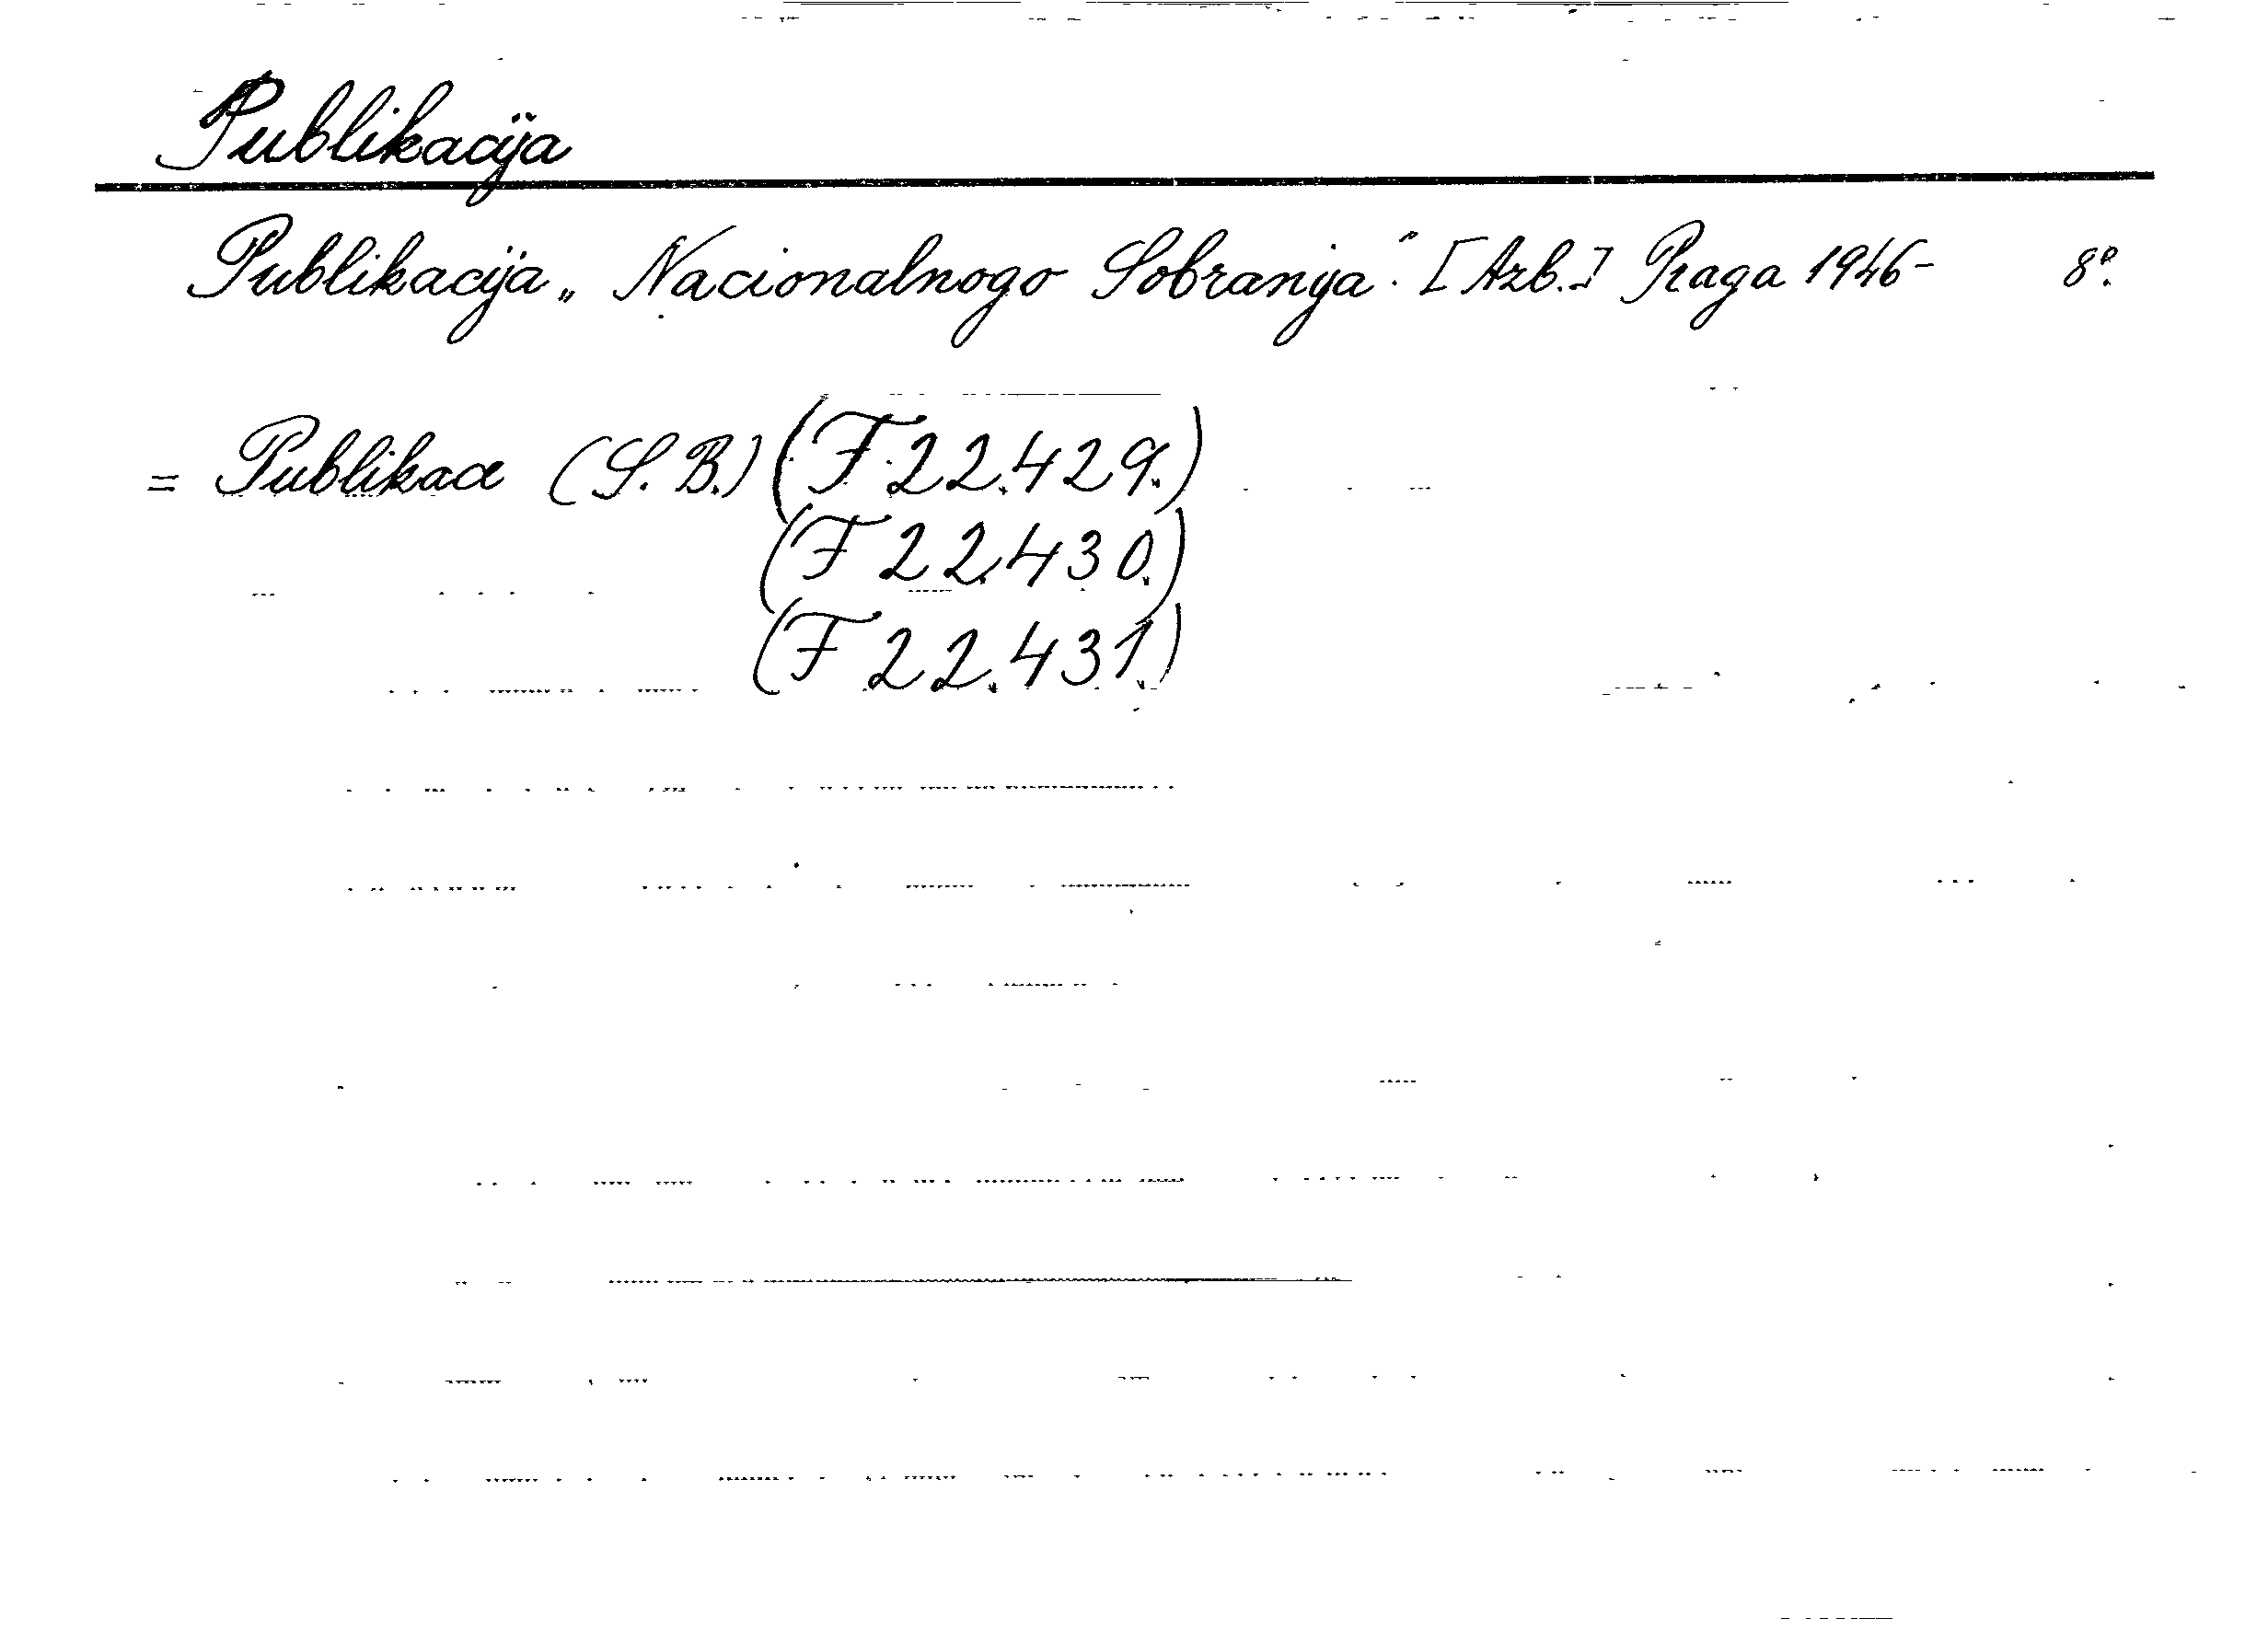 Publikacija
Publikacija „Nacionalnogo Sobranija". [Azb.] Praga 1946- 8°.
= Publikace (S. B.) (F 22.429.)
(F 22.430.)
(F 22.431.)